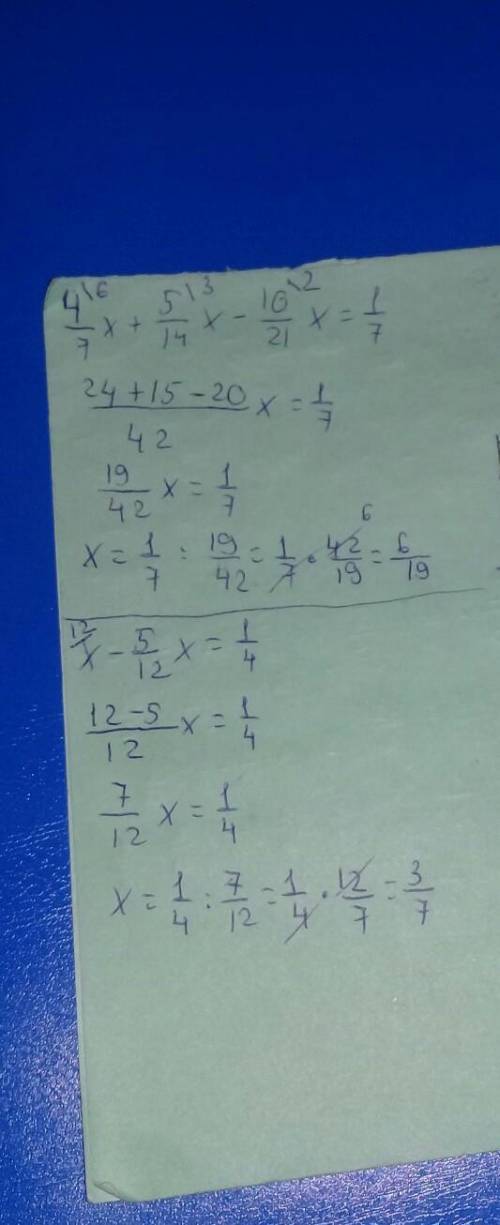 4\6/7 x + 5\3/14 x - 10\2/21 x = 1/7
24+15-20/42 x = 1/7
19/42 x = 1/7
x = 1/7 : 19/42 = 1/7 · 42 6/19 = 6/19
12/ x - 5/12 x = 1/4
12-5/12 x = 1/4
7/12 x = 1/4
x = 1/4 : 7/12 = 1/4 · 12/7 = 3/7